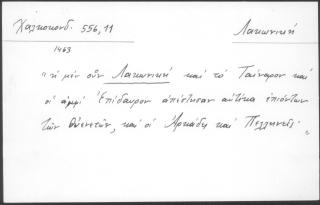 Χαλκοκονδ. 556,11
Λακωνική
1463
"ἡ μὲν οὖν Λακωνική καὶ τὸ Ταίναρον καὶ
οἱ ἀμφὶ Ἐπίδαυρον ἀπέστησαν αὐτίκα ἐπιόντων
τῶν Οὐενετῶν, καὶ οἱ Ἀρκάδες καὶ Πελληνεῖς."